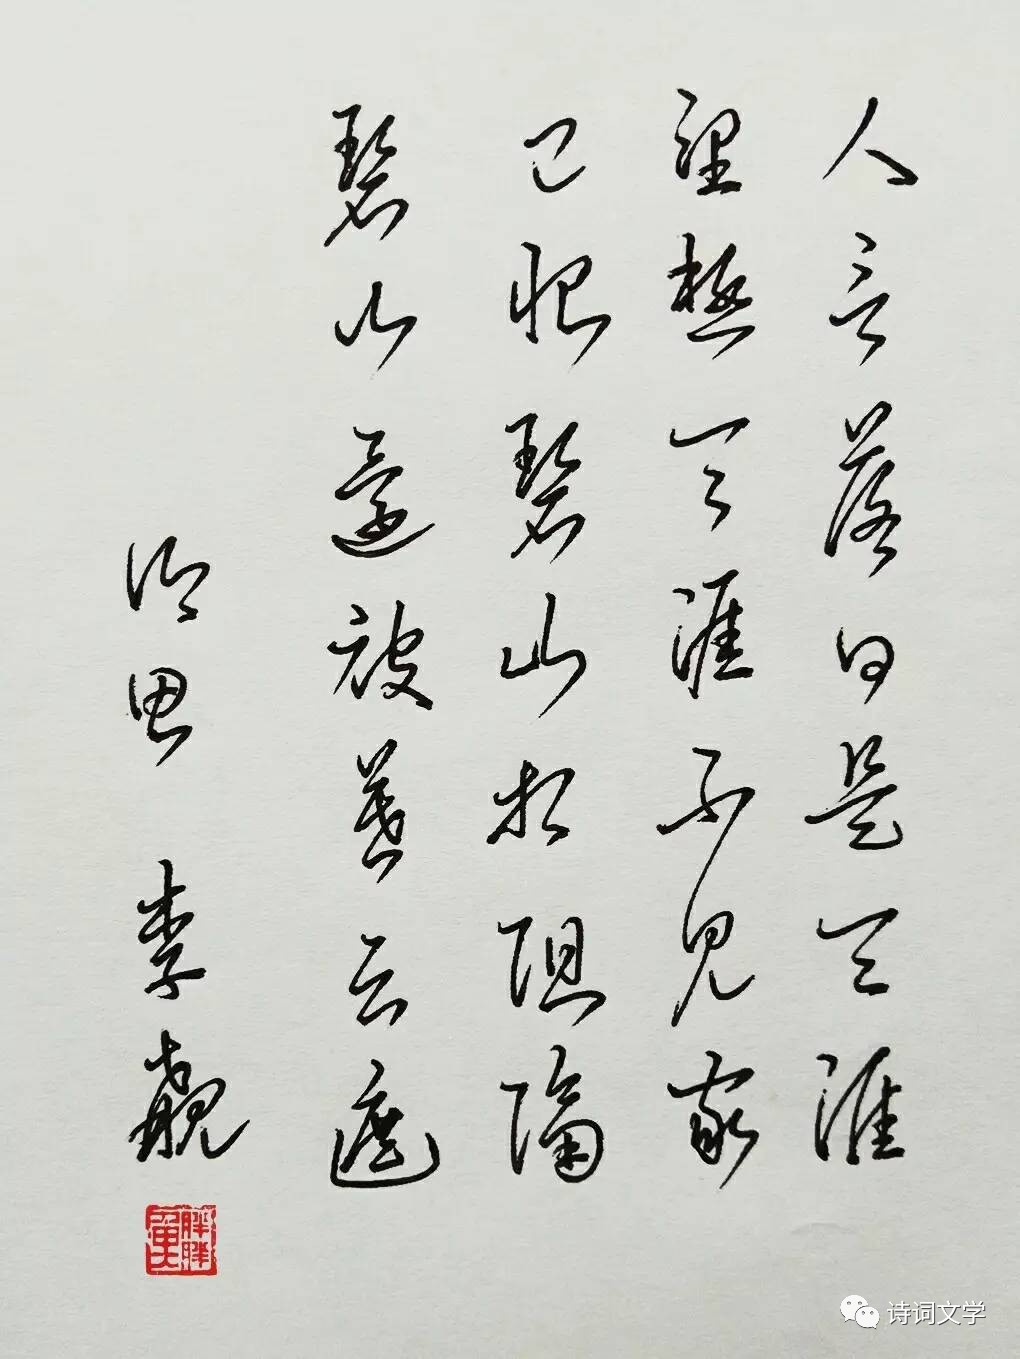 人言落日是天涯
望极天涯不见家
已恨碧山相阻隔
碧山还被暮云遮
乡思 李觏
诗词文学